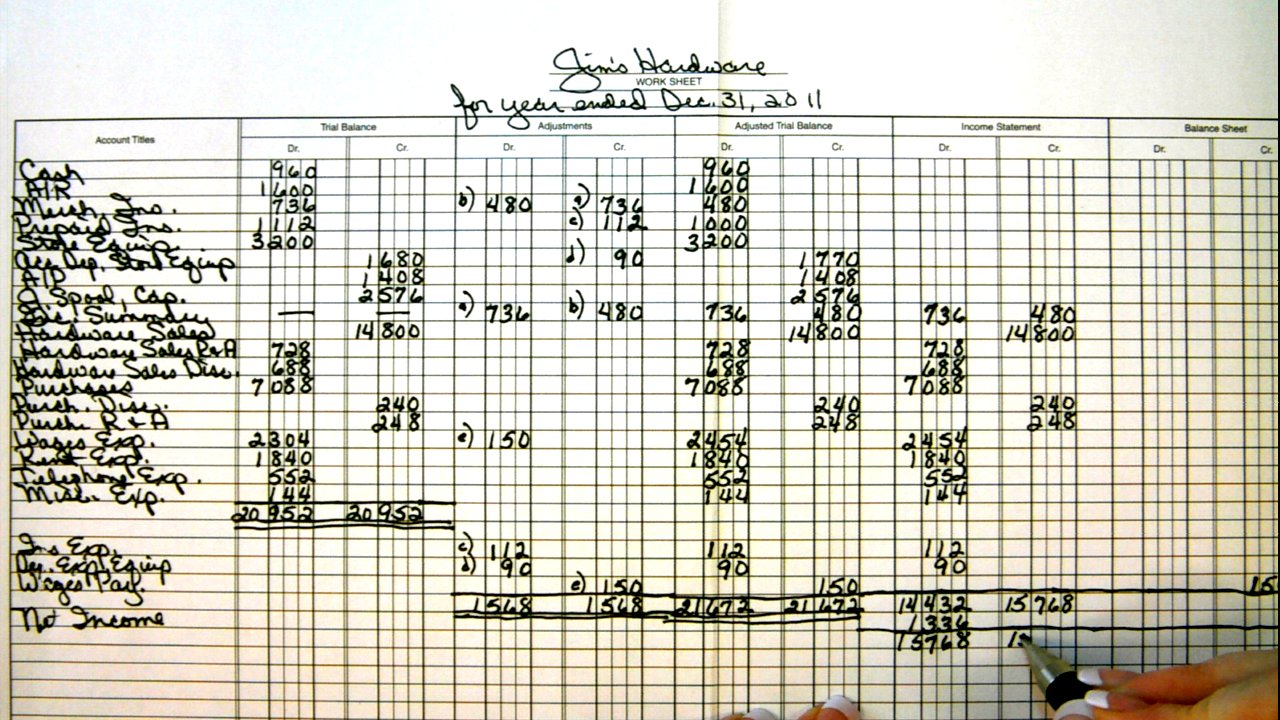 Jim's Hardware
WORK SHEET
for year ended Dec. 31, 2011
Account Titles Trial Balance Adjustments Adjusted Trial Balance Income Statement Balance Sheet
Dr. Cr. Dr. Cr. Dr. Cr. Dr. Cr. Dr. Cr.
Cash 960 960
A/R 1600 1600
Merch. Ins. 736 b) 480 a) 736 480
Prepaid Ins. 1112 c) 112 1000
Store Equip. 3200 3200
Acc. Dep. Store Equip 1680 d) 90 1770
A/P 1408 1408
J. Spool, Cap. 2576 2576
Inc. Summary — — a) 736 b) 480 736 480 736 480
Hardware Sales 14800 14800 14800
Hardware Sales R&A 728 728 728
Hardware Sales Disc. 688 688 688
Purchases 7088 7088 7088
Purch. Disc. 240 240 240
Purch. R & A 248 248 248
Wages Exp. 2304 e) 150 2454 2454
Rent Exp. 1840 1840 1840
Telephone Exp. 552 552 552
Misc. Exp. 144 144 144
20952 20952
Ins Exp. c) 112 112 112
Dep. Exp. Equip d) 90 90 90
Wages Pay. e) 150 150 15
1568 1568 21672 21672 14432 15768
Net Income 1336
15768 15